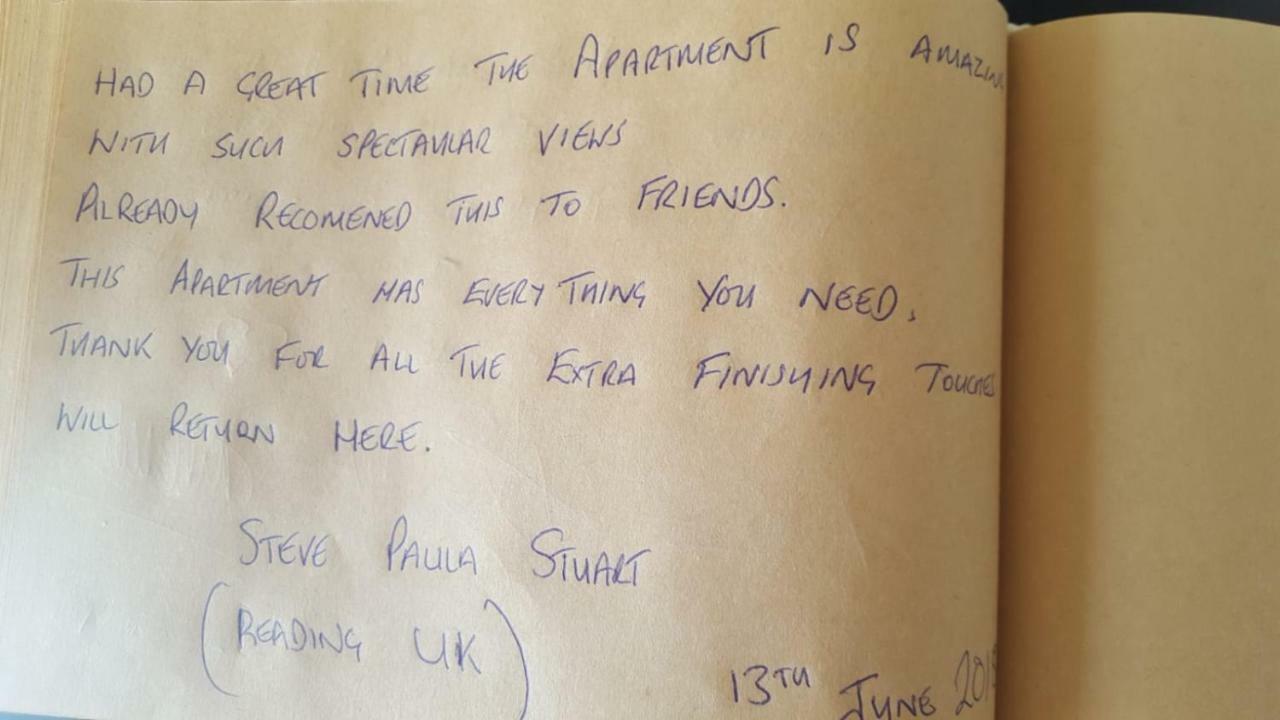 HAD A GREAT TIME THE APARTMENT IS AMAZING
WITH SUCH SPECTAULAR VIEWS
ALREADY RECOMENED THIS TO FRIENDS.
THIS APARTMENT HAS EVERY THING YOU NEED.
THANK YOU FOR ALL THE EXTRA FINISHING TOUCHES
WILL RETURN HERE.
STEVE PAULA STUART
(READING UK)
13TH JUNE